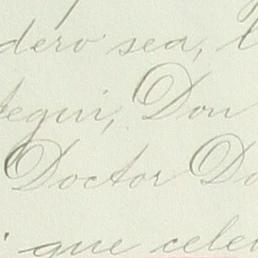 dero sea, l
tegui, Don
Doctor Do
que celeb